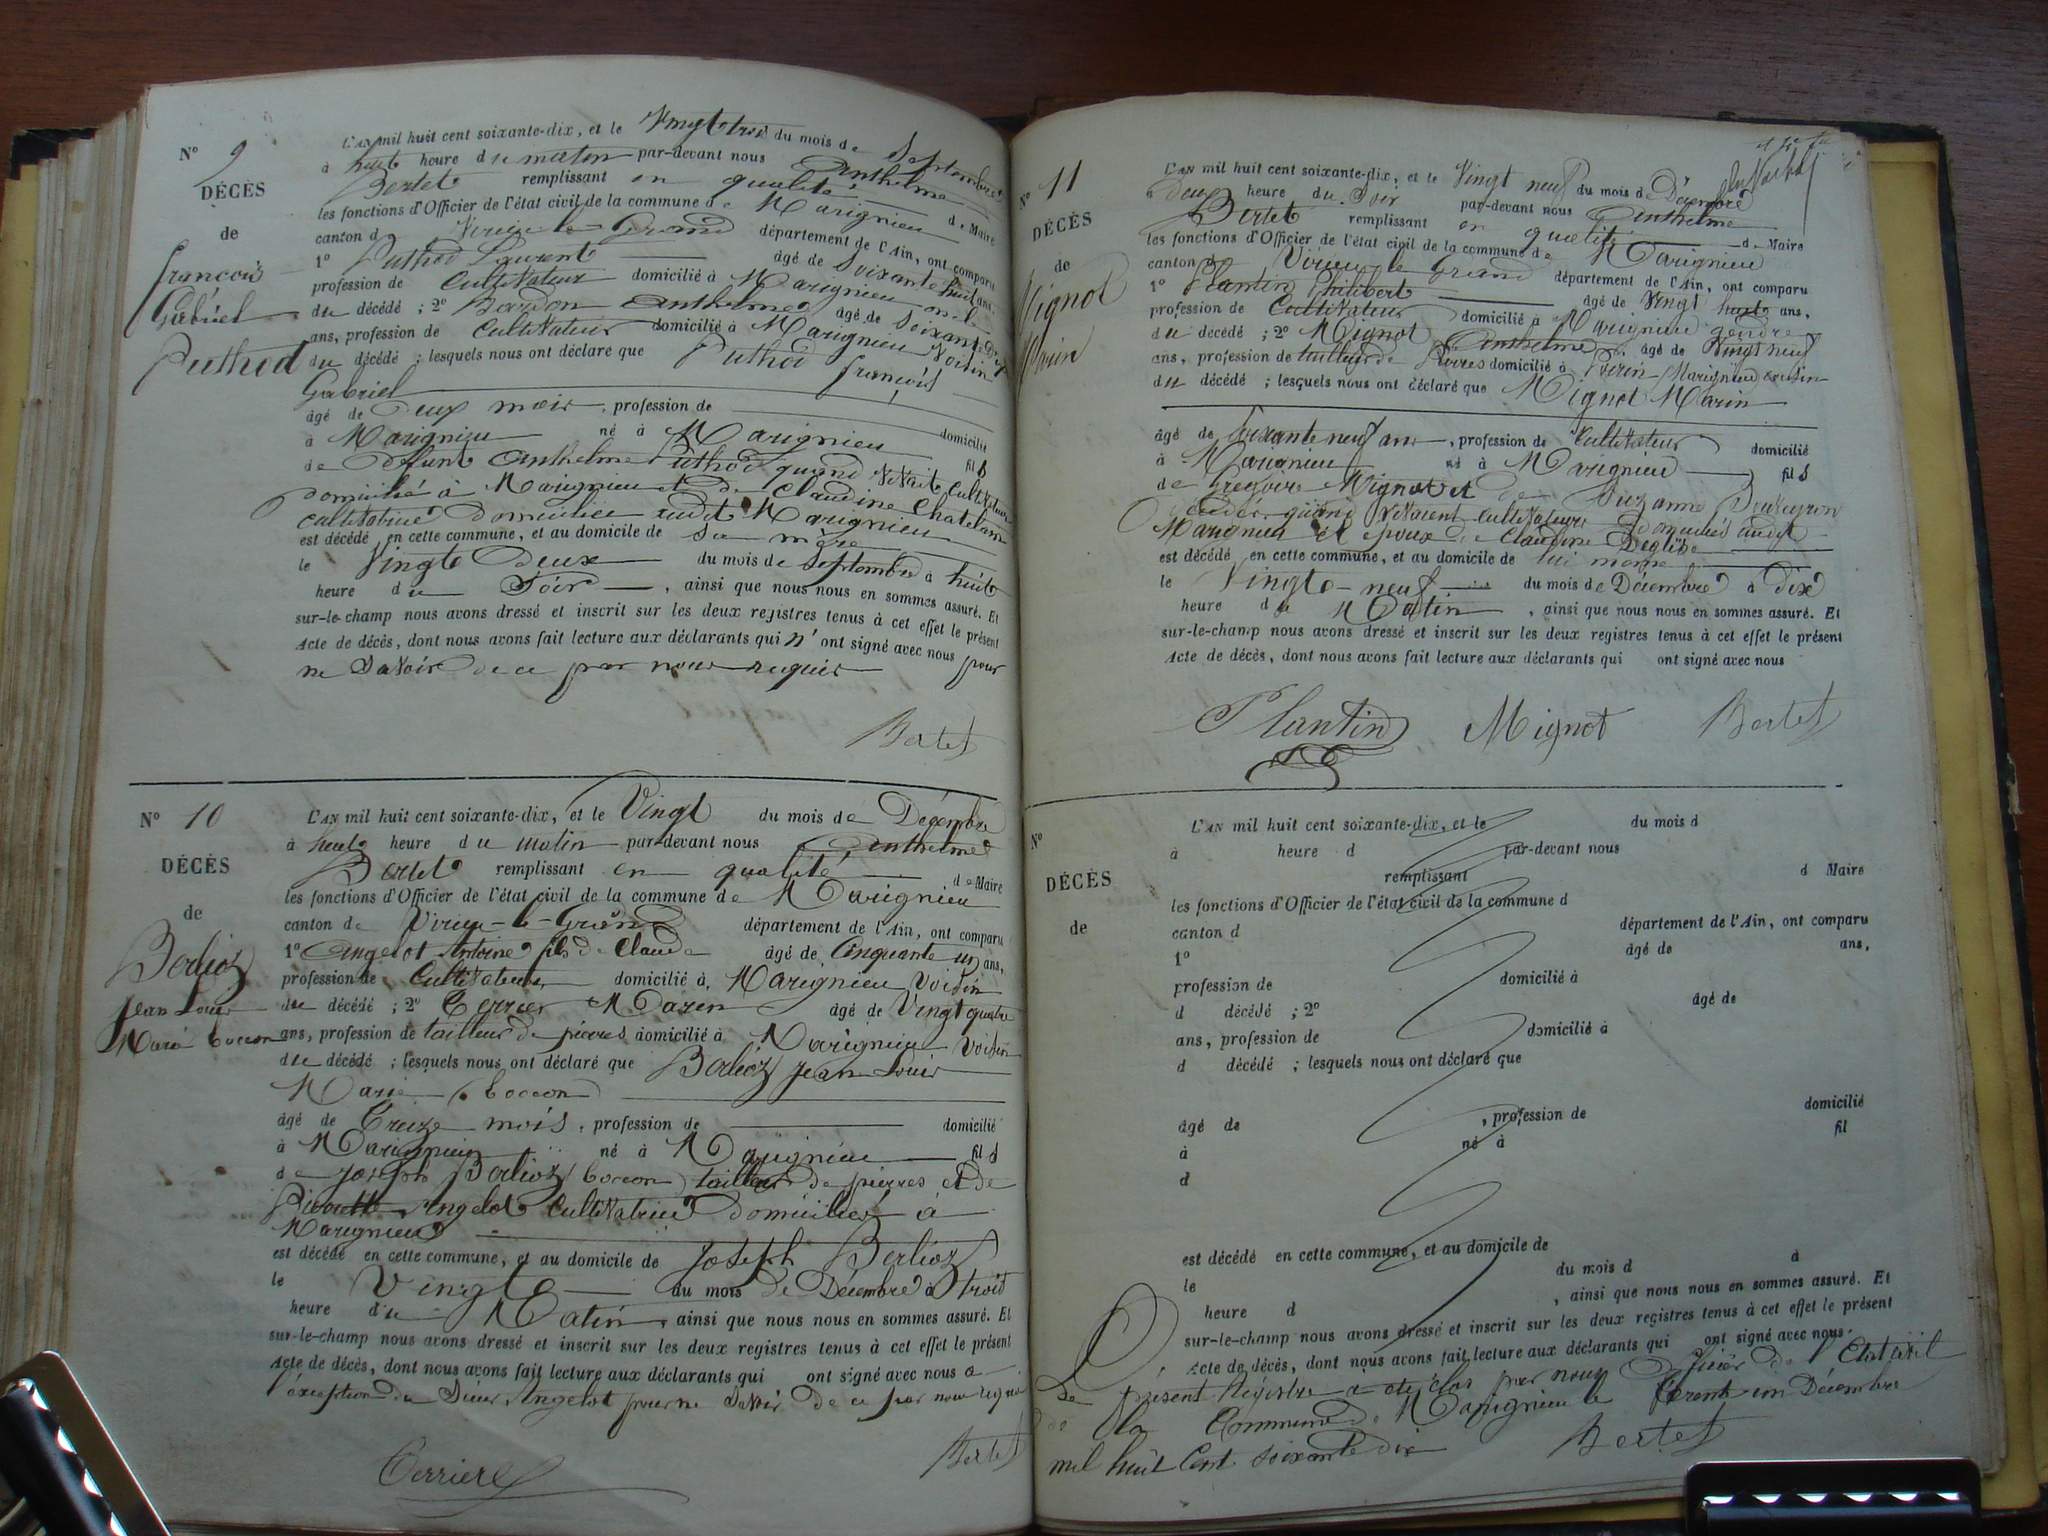 N° 9
DÉCÈS
de
françois
Gabriel
Puthod
L'AN mil huit cent soixante-dix, et le Vingt trois du mois de Septembre
à huit heure du matin par-devant nous Anthelme
Bertet remplissant en qualité de Maire
les fonctions d'Officier de l'état civil de la commune de Marignieu
canton de Virieu le Grand département de l'Ain, ont comparu
1° Puthod Laurent âgé de Soixante huit ans,
profession de Cultivateur domicilié à Marignieu oncle
du décédé ; 2° Bardon Anthelme âgé de Soixante
ans, profession de Cultivateur domicilié à Marignieu Voisin
du décédé ; lesquels nous ont déclaré que Puthod françois
Gabriel
âgé de Deux mois, profession de domicilié
à Marignieu né à Marignieu fils
de deffunt Anthelme Puthod quand vivait Cultivateur
domicilié à Marignieu et de Claudine Chatelain
cultivatrice domiciliée audit Marignieu
est décédé en cette commune, et au domicile de sa mère
le Vingt Deux du mois de Septembre à huit
heure du Soir, ainsi que nous nous en sommes assuré. Et
sur-le-champ nous avons dressé et inscrit sur les deux registres tenus à cet effet le présent
Acte de décès, dont nous avons fait lecture aux déclarants qui n'ont signé avec nous pour
ne Savoir de ce par nous requis
Bertet
N° 10
DÉCÈS
de
Berlioz
Jean Louis
Marie Coccon
L'AN mil huit cent soixante-dix, et le Vingt du mois de Décembre
à huit heure du matin par-devant nous Anthelme
Bertet remplissant en qualité de Maire
les fonctions d'Officier de l'état civil de la commune de Marignieu
canton de Virieu-le-Grand département de l'Ain, ont comparu
1° Angelot Antoine fils de Claude âgé de Cinquante un ans,
profession de Cultivateur domicilié à Marignieu Voisin
du décédé ; 2° Terrier Marin âgé de Vingt quatre
ans, profession de tailleur de pierres domicilié à Marignieu Voisin
du décédé ; lesquels nous ont déclaré que Berlioz Jean Louis
Marie Coccon
âgé de Treize mois, profession de domicilié
à Marignieu né à Marignieu fils
de Joseph Berlioz Coccon tailleur de pierres et de
Angelot Cultivatrice domiciliés à
Marignieu
est décédé en cette commune, et au domicile de Joseph Berlioz
le Vingt du mois de Décembre à trois
heure du Matin, ainsi que nous nous en sommes assuré. Et
sur-le-champ nous avons dressé et inscrit sur les deux registres tenus à cet effet le présent
Acte de décès, dont nous avons fait lecture aux déclarants qui ont signé avec nous a
l'éxception du Sieur Angelot pour ne Savoir de ce par nous requis
Terrier Bertet
N° 11
DÉCÈS
de
Mignot
Marin
L'AN mil huit cent soixante-dix, et le Vingt neuf du mois de Décembre
à deux heure du Soir par-devant nous Anthelme
Bertet remplissant en qualité de Maire
les fonctions d'Officier de l'état civil de la commune de Marignieu
canton de Virieu le Grand département de l'Ain, ont comparu
1° Plantin Philibert âgé de Vingt huit ans,
profession de Cultivateur domicilié à Marignieu gendre
du décédé ; 2° Mignot Anthelme âgé de Vingt neuf
ans, profession de tailleur de Pierres domicilié à Marignieu cousin
du décédé ; lesquels nous ont déclaré que Mignot Marin
âgé de Soixante neuf ans, profession de Cultivateur domicilié
à Marignieu né à Marignieu fils
de Gregoire Mignot et de Suzanne
décédés quand Vivaient Cultivateurs Domiciliés audit
Marignieu et époux de Claudine
est décédé en cette commune, et au domicile de lui même
le Vingt-neuf du mois de Décembre à dix
heure du Matin, ainsi que nous nous en sommes assuré. Et
sur-le-champ nous avons dressé et inscrit sur les deux registres tenus à cet effet le présent
Acte de décès, dont nous avons fait lecture aux déclarants qui ont signé avec nous
Plantin Mignot Bertet
N°
DÉCÈS
de
L'AN mil huit cent soixante-dix, et le du mois d
à heure d par-devant nous
remplissant d Maire
les fonctions d'Officier de l'état civil de la commune d
canton d département de l'Ain, ont comparu
1° âgé de ans,
profession de domicilié à
d décédé ; 2° âgé de
ans, profession de domicilié à
d décédé ; lesquels nous ont déclaré que
âgé de , profession de domicilié
à né à fil
d
est décédé en cette commune, et au domicile de
le du mois d à
heure d , ainsi que nous nous en sommes assuré. Et
sur-le-champ nous avons dressé et inscrit sur les deux registres tenus à cet effet le présent
Acte de décès, dont nous avons fait lecture aux déclarants qui ont signé avec nous.
Le présent Régistre a été clos par nous Officier de l'Etat civil
de la Commune de Marignieu le Trente un Décembre
mil huit Cent soixante dix Bertet